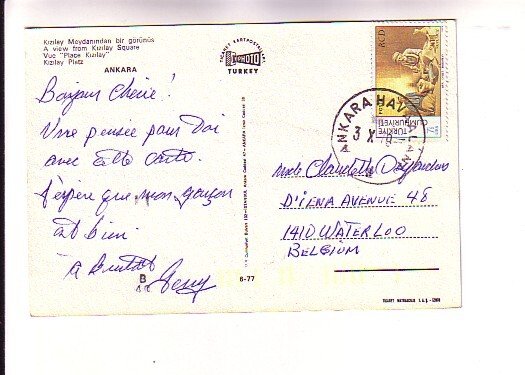 Kızılay Meydanından bir görünüş
A view from Kızılay Square
Vue "Place Kızılay"
Kızılay Platz
ANKARA
Bonjour Chérie!
Une pensée pour Toi
avec cette carte.
J'espère que mon garçon
est bien.
A Bientôt
TICARET KARTPOSTALLARI
PHOTO
TURKEY
6-77
RCD
TÜRKİYE
CUMHURİYETİ
ANKARA HAVAALANI
3 X
Claudette
D'IENA AVENUE 48
1410 WATERLOO
BELGIUM
TICARET MATBAACILIK T.A.Ş.